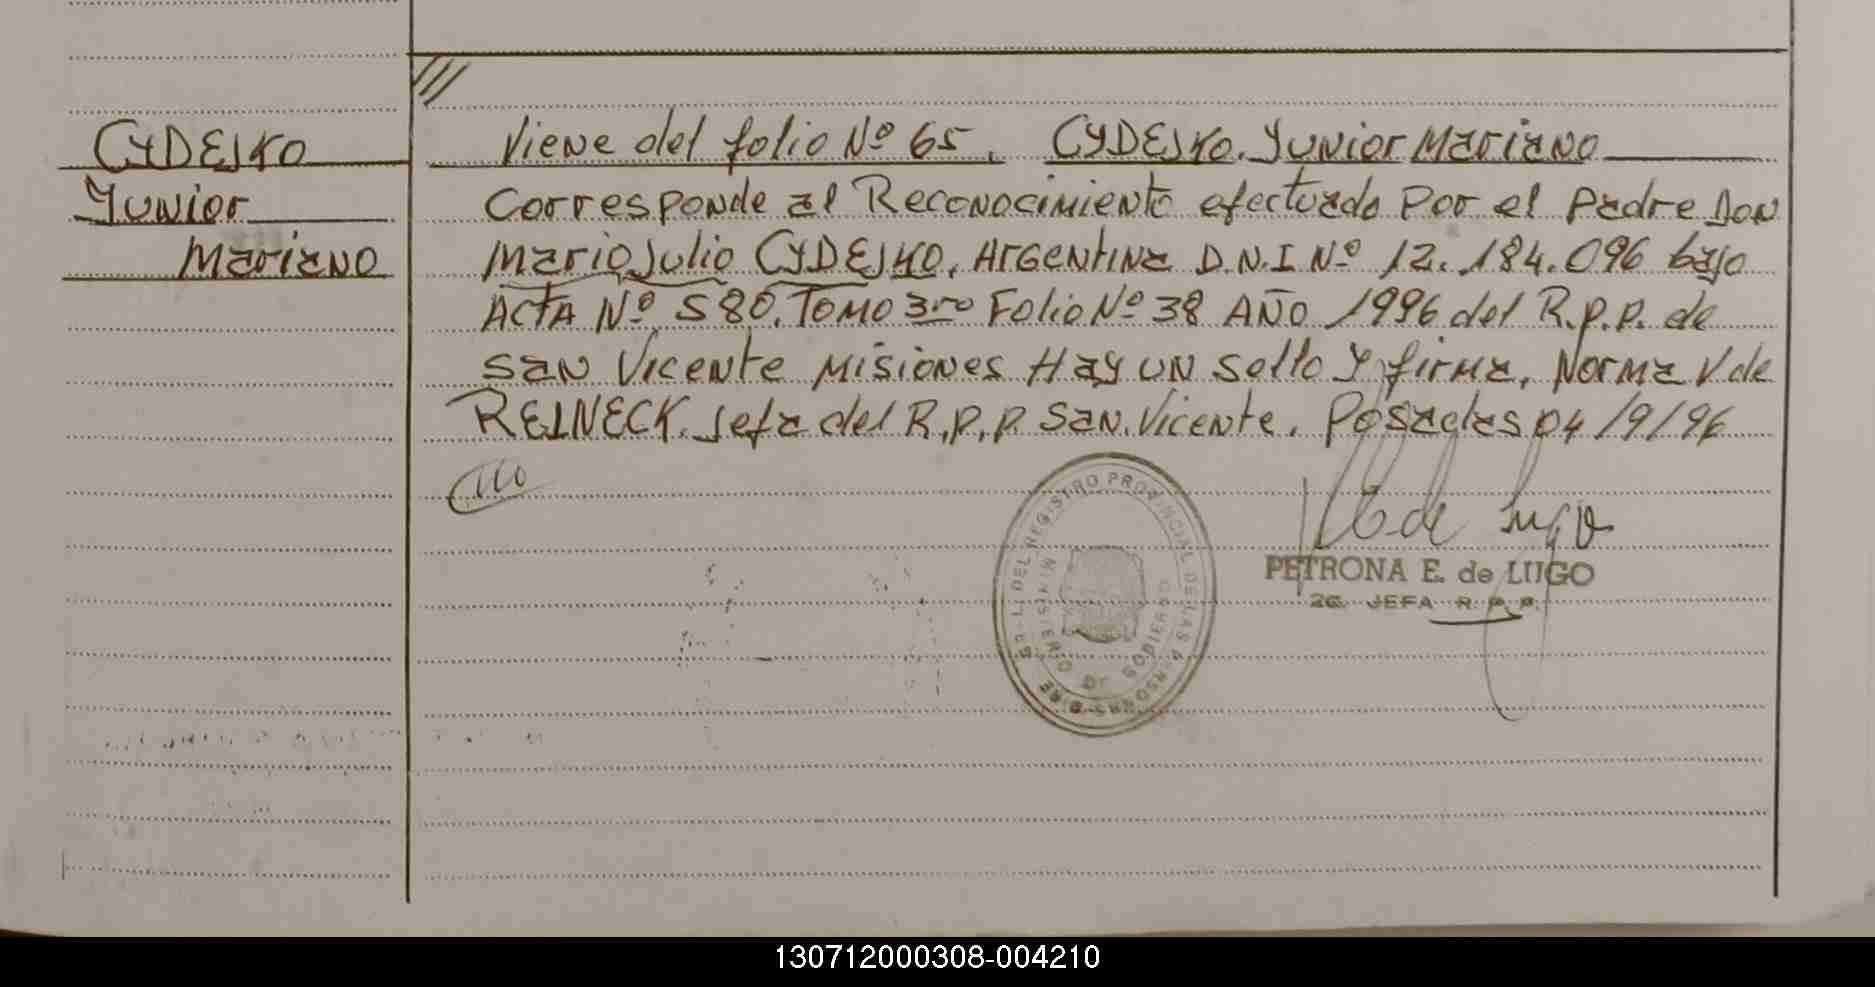 CYDEJKO
Yunior
Mariano
///
Viene del folio Nº 65. CYDEJKO. Yunior Mariano
Corresponde al Reconocimiento efectuado Por el Padre Don
Mario Julio CYDEJKO, Argentina D.N.I Nº 12.184.096 bajo
Acta Nº 580. Tomo 3ro Folio Nº 38 AÑO 1996 del R.p.p. de
San Vicente Misiones Hay un sello y firma, Norma V de
REINECK. Jefa del R.p.p. San. Vicente. Posadas 04/9/96
REGISTRO PROVINCIAL DE LAS PERSONAS
MINISTERIO DE GOBIERNO
PETRONA E. de LUGO
JEFA R. P. P.
130712000308-004210